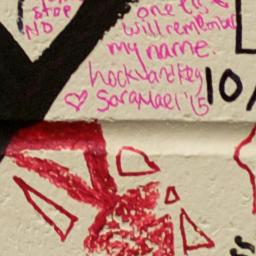 stop
NO
one
will remember
my name.
Lock and Key
♡ Saramael '15
10/